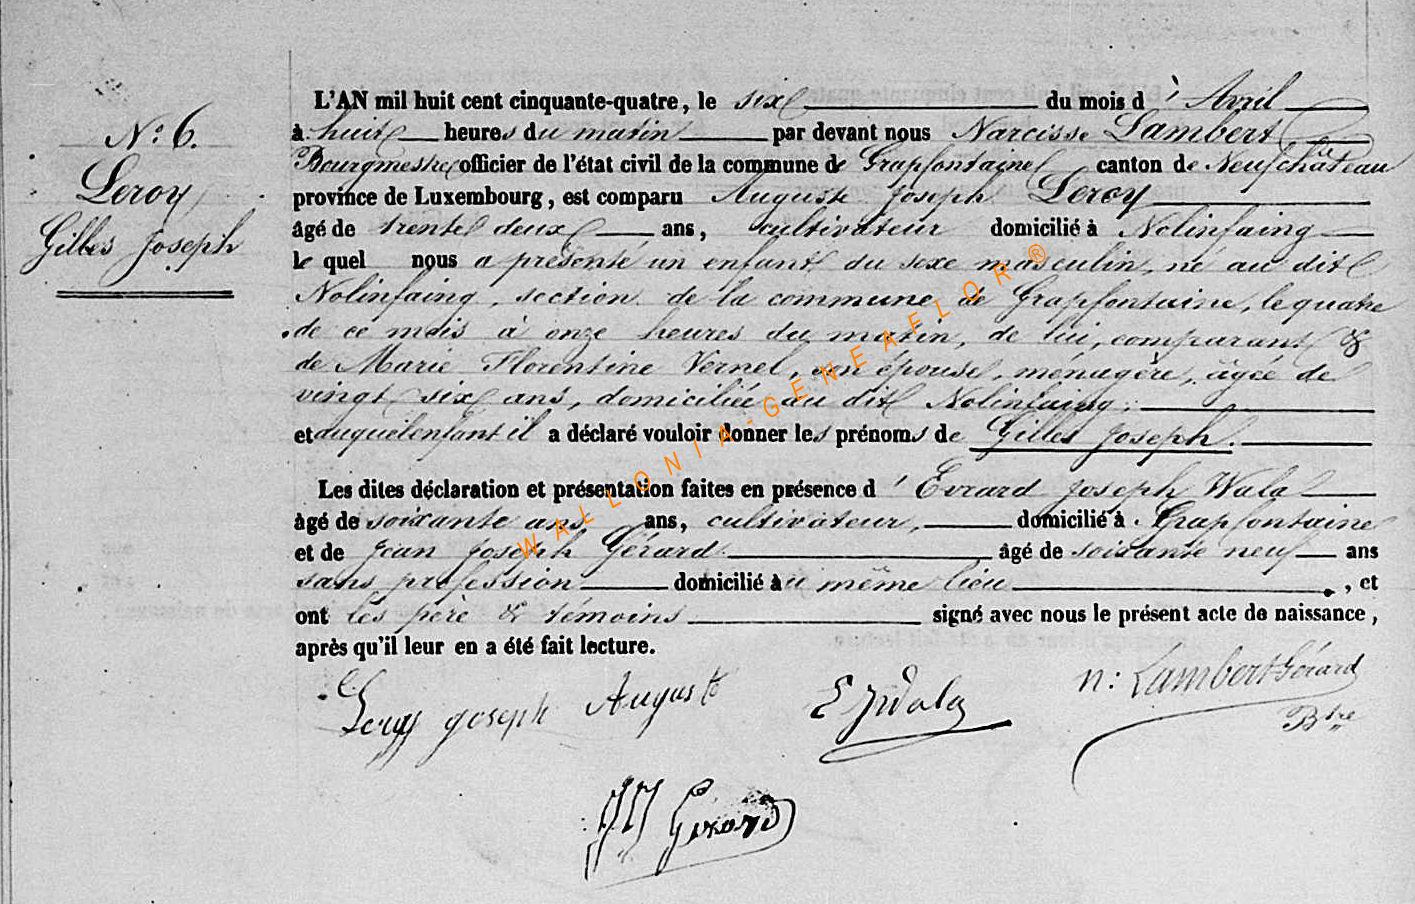 N: 6.
Leroy
Gilles Joseph
L'AN mil huit cent cinquante-quatre, le six du mois d' Avril
à huit heures du matin par devant nous Narcisse Lambert
Bourgmestre officier de l'état civil de la commune de Grapfontaine canton de Neufchâteau
province de Luxembourg, est comparu Auguste Joseph Leroy
âgé de trente deux ans, cultivateur domicilié à Nolinfaing
le quel nous a présenté un enfant du sexe masculin, né au dit
Nolinfaing, section de la commune de Grapfontaine, le quatre
de ce mois à onze heures du matin, de lui, comparant &
de Marie Florentine Vernel, son épouse, ménagère, âgée de
vingt six ans, domiciliée au dit Nolinfaing;
et auquel enfant il a déclaré vouloir donner les prénoms de Gilles Joseph.
Les dites déclaration et présentation faites en présence d' Evrard Joseph Wala
âgé de soixante ans ans, cultivateur, domicilié à Grapfontaine
et de Jean Joseph Gérard âgé de soixante neuf ans
sans profession domicilié au même lieu, et
ont les père & témoins signé avec nous le présent acte de naissance,
après qu'il leur en a été fait lecture.
Leroy Joseph Auguste
E J Wala
n: Lambert Gérard
Btre
JJ Gérard
WALLONIA-GENEAFLOR®